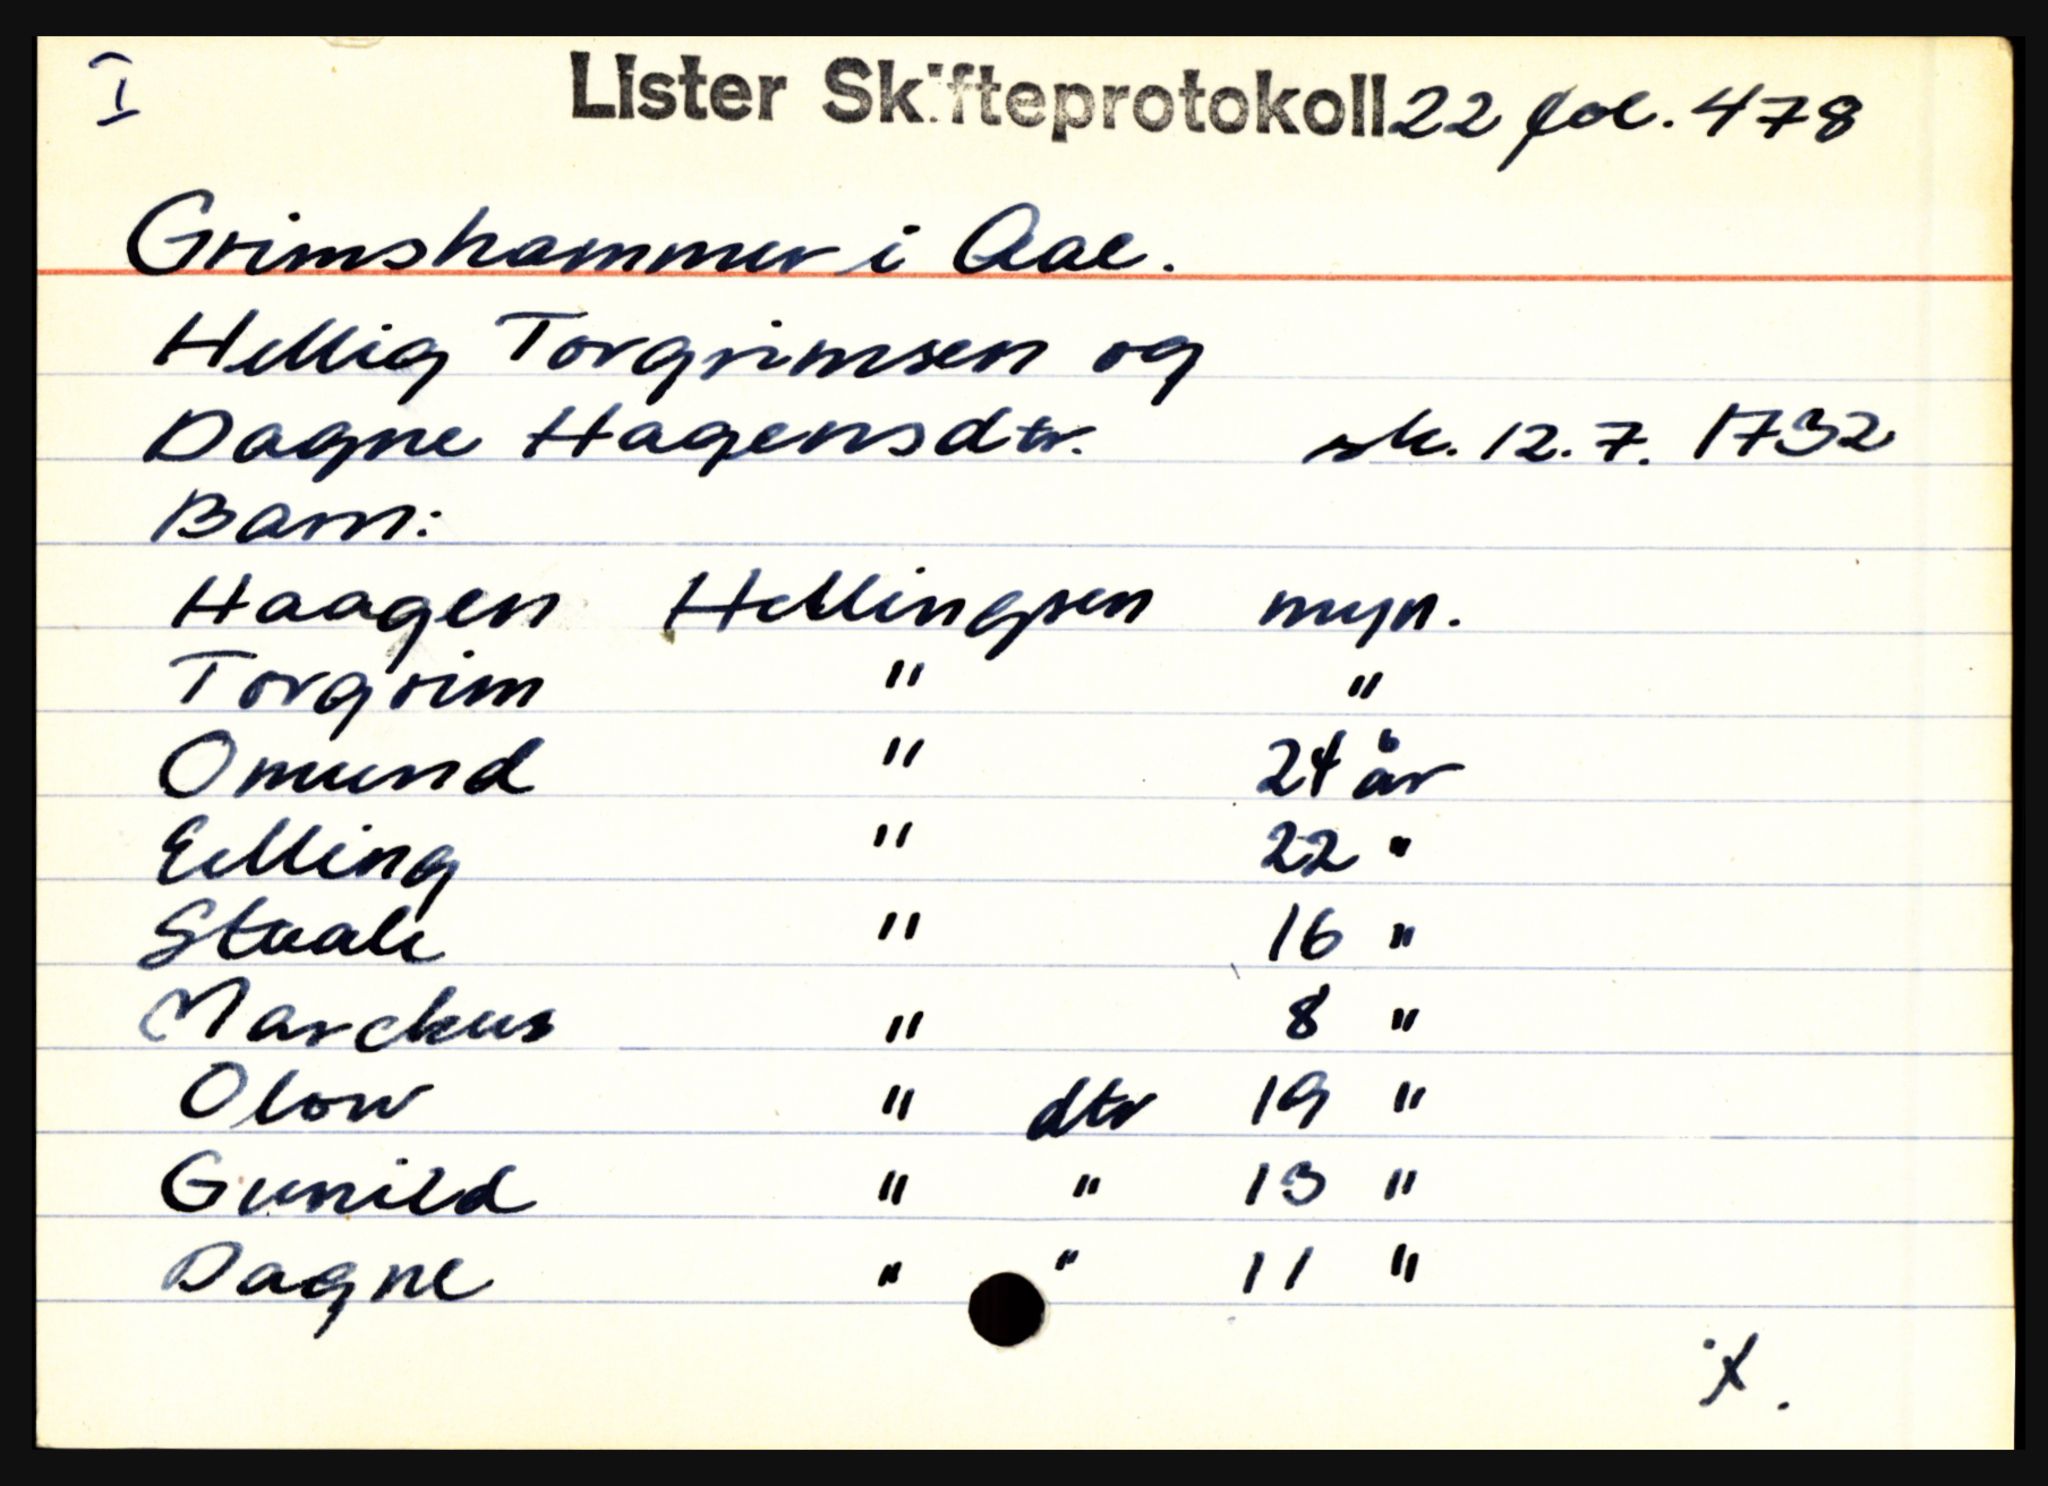 I Lister Skifteprotokoll 22 fol. 478
Grimshammer i Aal.
Hellig Torgrimsen og
Dagne Hagensdtr. sk. 12.7. 1732
Barn:
Haagen Hellingsen myn.
Torgrim " "
Omund " 24 år
Eelling " 22 "
Staale " 16 "
Marckus " 8 "
Olow " dtr 19 "
Gunild " " 13 "
Dagne " " 11 "